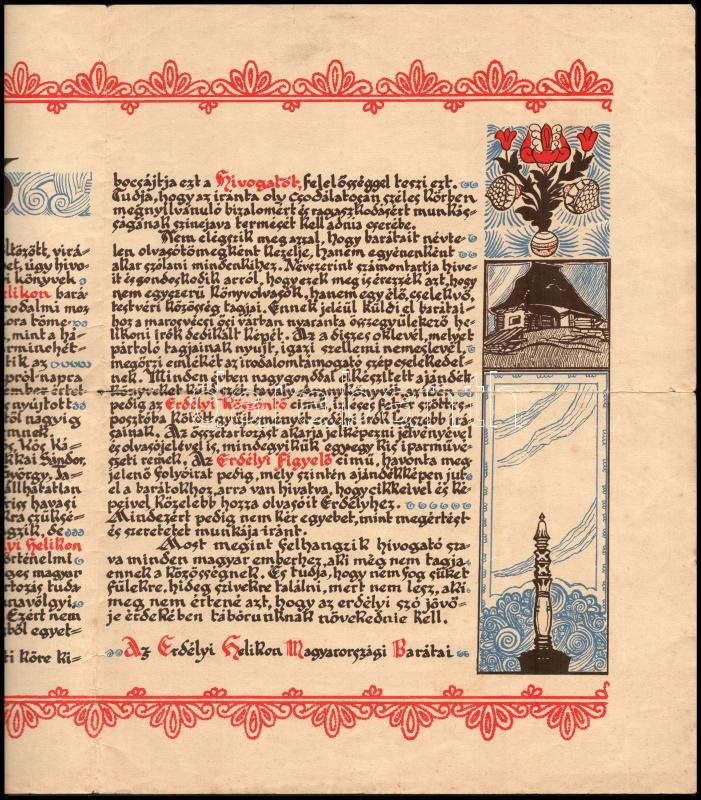 ltözött, virá-
et, úgy hivo-
i könyvek.
elikon bará-
rodalmi moz
kora töme-
, mint a há-
rminchét-
tik az
pról-napra
ember értet-
s nyújtott
tól nagyig
emnek
os, Kós Ká-
kkai Sándor,
György, Ja-
állhatatlan
rig havasi
kra szüksé-
gzik, de
lyi Helikon
örténelmi
ges magyar
rtozás tuda
navölgyi,
Ezért nem
ből egyet-
ti köre ki-
bocsájtja ezt a Hívogatót, felelősséggel teszi ezt.
Tudja, hogy az iránta oly csodálatosan széles körben
megnyilvánuló bizalomért és ragaszkodásért munkás-
ságának színejava termését kell adnia cserébe.
Nem elégszik meg azzal, hogy barátait névte-
len olvasótömegként kezelje, hanem egyénenként
akar szólani mindenkihez. Névszerint számontartja híve-
it és gondoskodik arról, hogy ezek meg is érezzék azt, hogy
nem egyszerű könyvolvasók, hanem egy élő, cselekvő,
testvéri közösség tagjai. Ennek jeléül küldi el barátai-
hoz a marosvécsi ősi várban nyaranta összegyülekező he-
likoni írók dedikált képét. Az a díszes oklevél, melyet
pártoló tagjainak nyujt, igazi szellemi nemeslevél,
megőrzi emlékét az irodalomtámogató szép cselekedet-
nek. Minden évben nagy gonddal elkészített ajándék
könyveket
pedig az Erdélyi Köszöntő című, díszes fehér szőttes
posztóba kötött gyűjteményét erdélyi írók legszebb írá-
sainak. Az összetartozást akarja jelképezni jelvényével
és olvasójelével is, mindegyikük egy-egy kis iparművé-
szeti remek. Az Erdélyi Figyelő című, havonta meg-
jelenő folyóirat pedig, mely szintén ajándékképen jut
el a barátokhoz, arra van hivatva, hogy cikkeivel és ké-
peivel közelebb hozza olvasóit Erdélyhez.
Mindezért pedig nem kér egyebet, mint megértést
és szeretetet munkája iránt.
Most megint felhangzik hívogató sza-
va minden magyar emberhez, aki még nem tagja
ennek a közösségnek. És tudja, hogy nem fog süket
fülekre, hideg szívekre találni, mert nem lesz, aki
meg nem értené azt, hogy az erdélyi szó jövő-
je érdekében táborunknak növekednie kell.
Az Erdélyi Helikon Magyarországi Barátai
darabanth